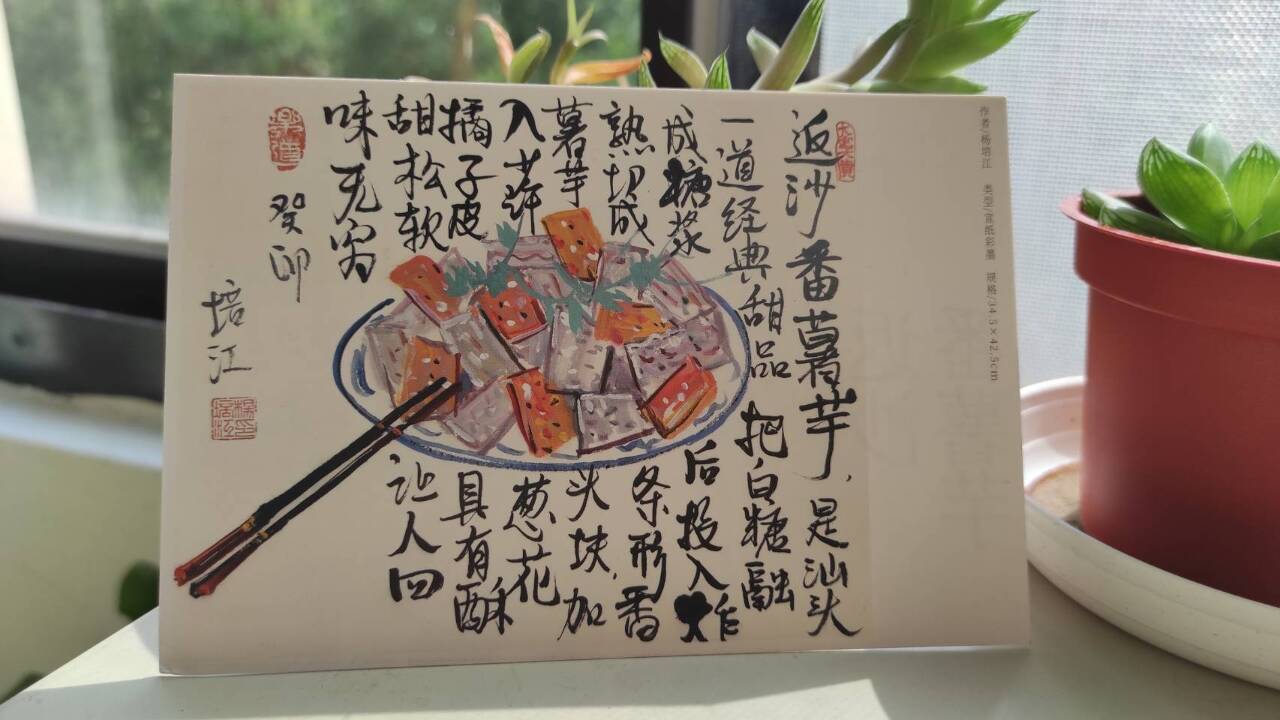 作者/杨培江 类型/宣纸彩墨 规格/34.5×42.5cm
返沙番薯芋,是汕头
一道经典甜品 把白糖融
成糖浆 后投入炸
熟切成 条形番
薯芋 头块,加
入 葱花
橘子皮 具有酥
甜松软 让人回
味无穷
癸卯
培江